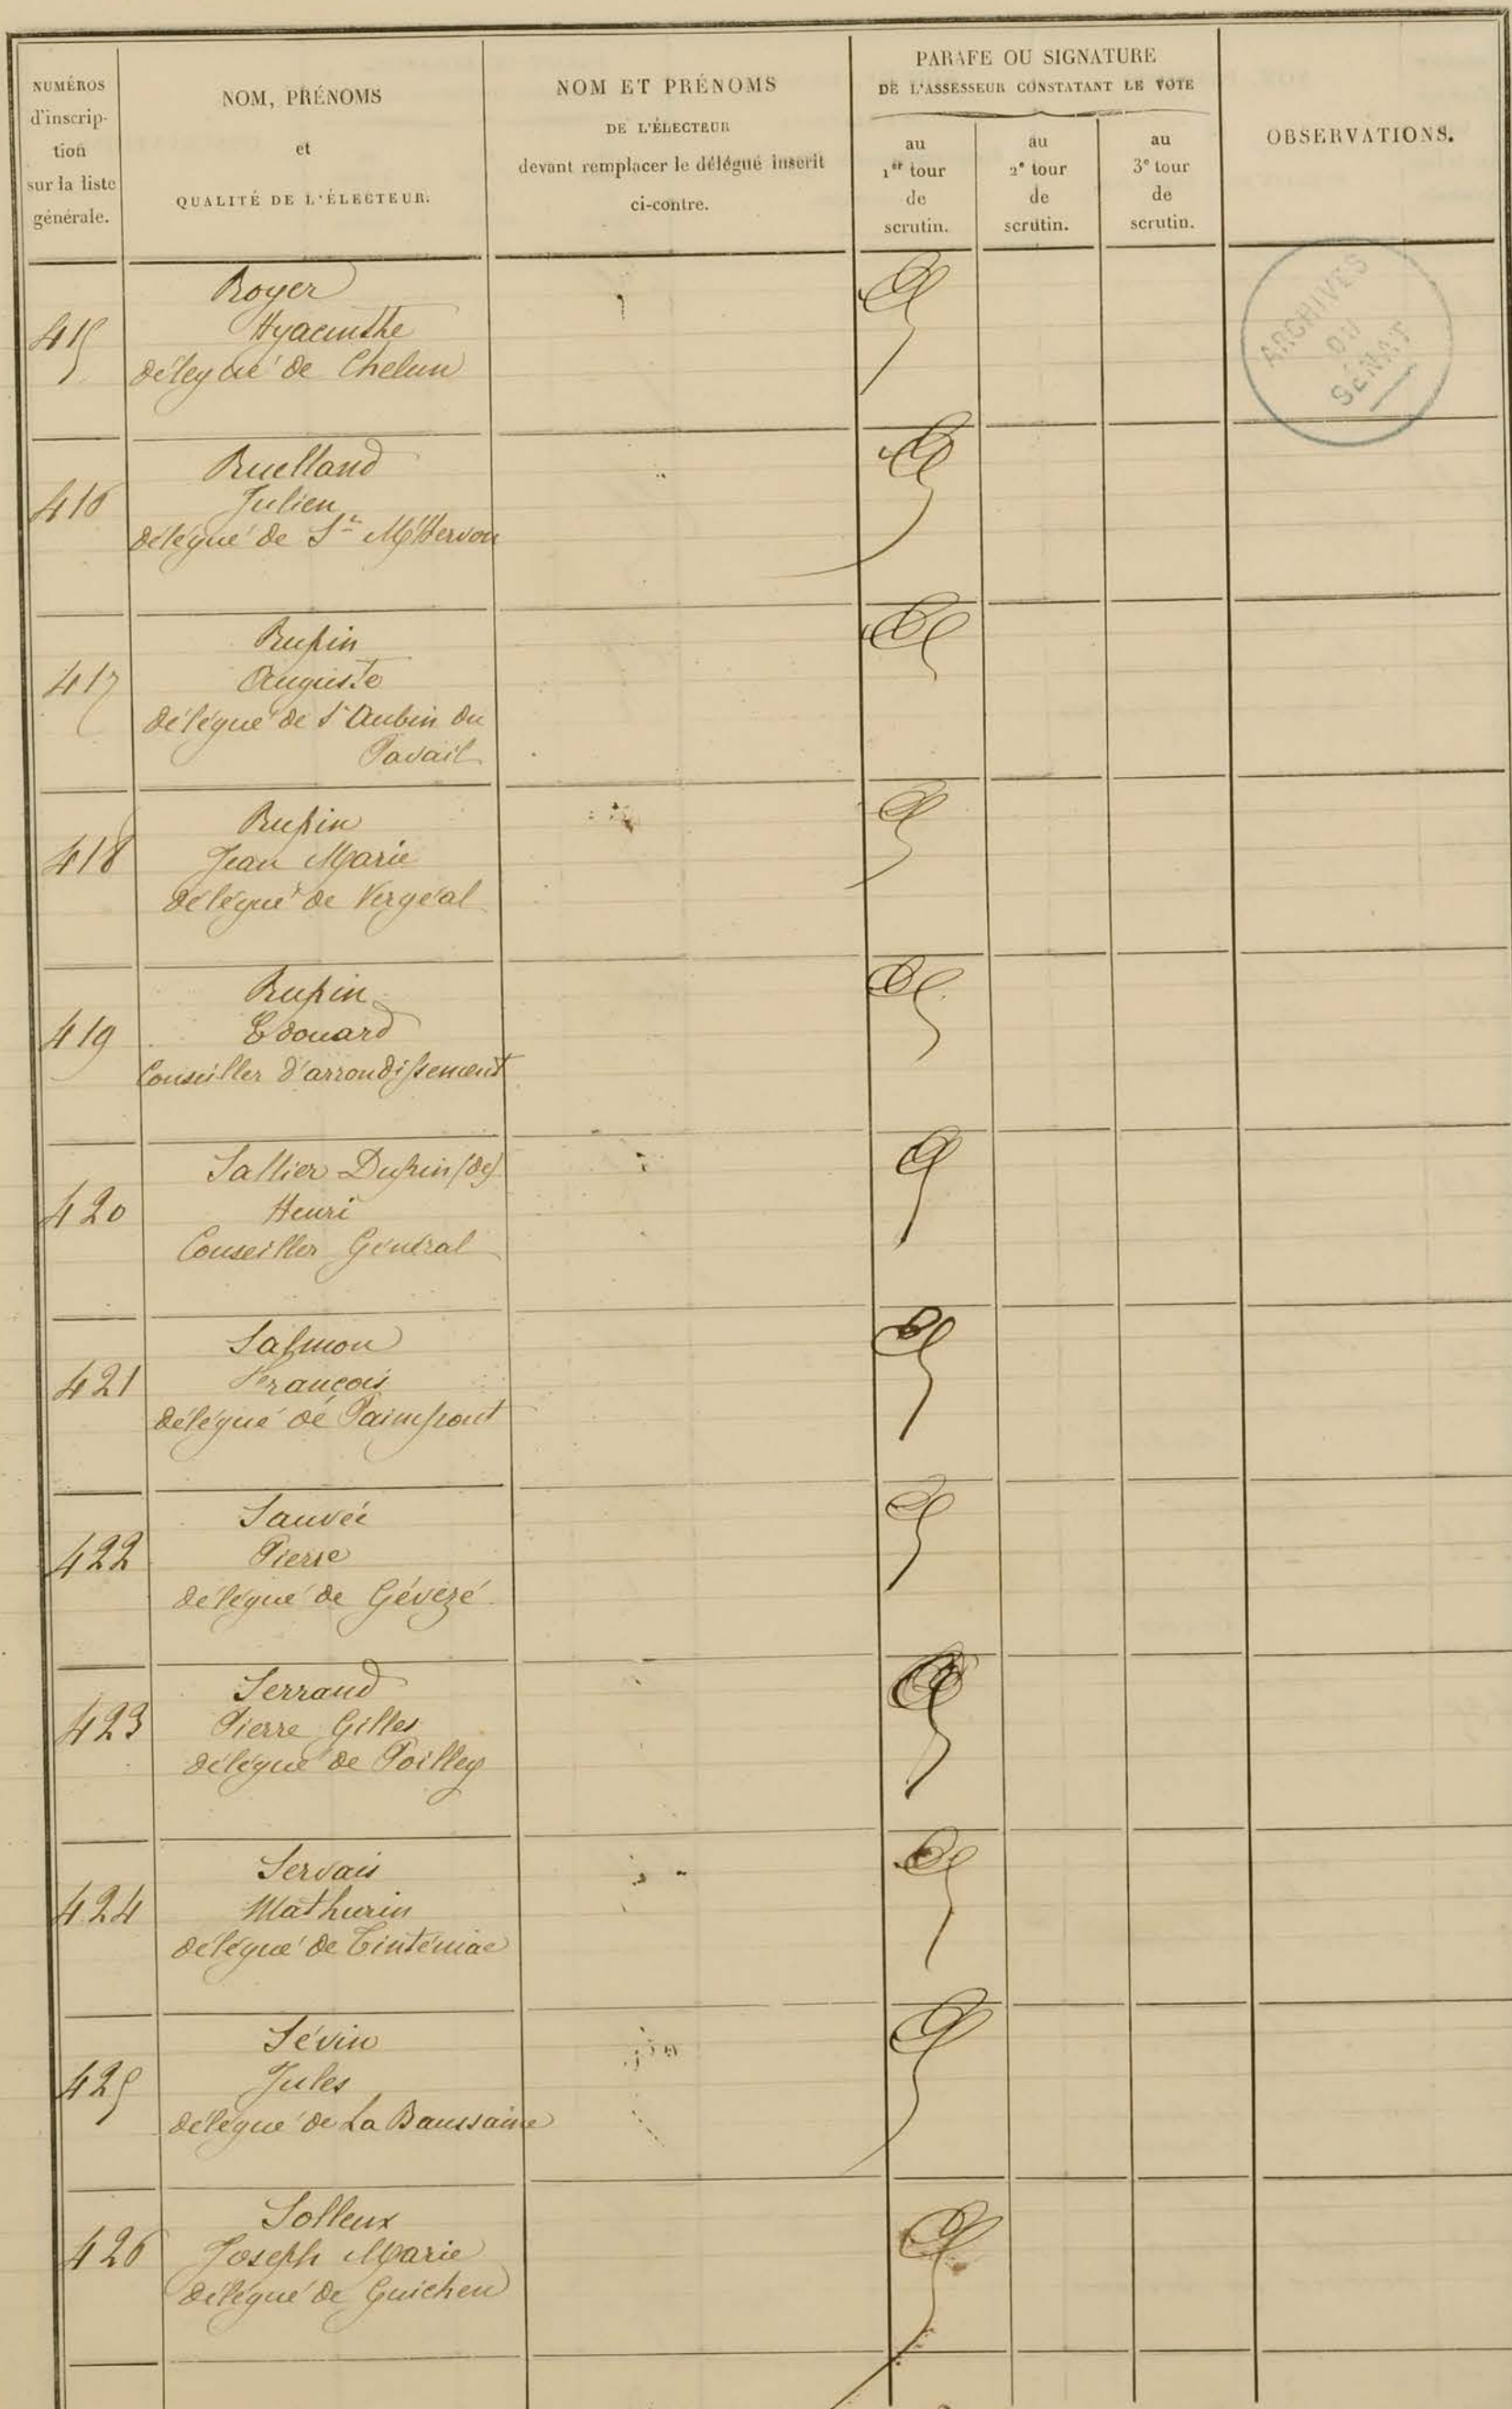 NUMÉROS
d'inscrip-
tion
sur la liste
générale.
NOM, PRÉNOMS
et
QUALITÉ DE L'ÉLECTEUR.
NOM ET PRÉNOMS
DE L'ÉLECTEUR
devant remplacer le délégué inscrit
ci-contre.
PARAFE OU SIGNATURE
DE L'ASSESSEUR CONSTATANT LE VOTE
au
1er tour
de
scrutin.
au
2e tour
de
scrutin.
au
3e tour
de
scrutin.
OBSERVATIONS.
ARCHIVES
DU
SÉNAT
Royer
415 Hyacinthe
délégué de Chelun
Ruelland
416 Julien
délégué de St M'Hervon
Rupin
417 Auguste
délégué de St Aubin du
Pavail
Rupin
418 Jean Marie
délégué de Vergéal
Rupin
419 Edouard
Conseiller d'arrondissement
Sallier Dupin (de)
420 Henri
Conseiller Général
Salmon
421 François
délégué de Paimpont
Sauvée
422 Pierre
délégué de Gévezé
Serrand
423 Pierre Gilles
délégué de Poilley
Servais
424 Mathurin
délégué de Tinténiac
Sévin
425 Jules
délégué de La Baussaine
Solleux
426 Joseph Marie
délégué de Guichen